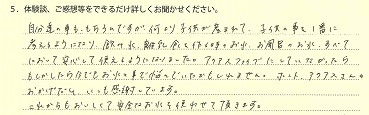 5．体験談、ご感想等をできるだけ詳しくお聞かせください。
自分達の事も、もちろんですが何より子供が産まれて、子供の事を1番に
考えるようになり、飲み水、離乳食を作る時のお水、お風呂のお水、すべて
において安心して使えるようになりました。アクアスファイブにしていなかったら
もしかしたら今でもお水の事で悩んでいたかもしれません。ホント、アクアスさんの
おかげだなと、いつも感謝しています。
これからもおいしくて安全なお水を使わせて頂きます。